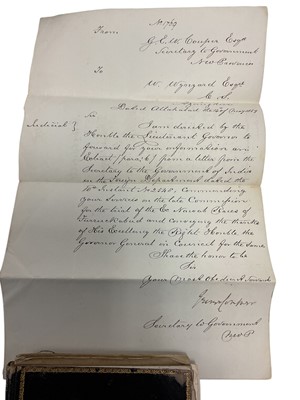 No. 1779
From
G. E. W. Couper Esqre
Secretary to Government
N. W. Provinces
To
W. Wynyard Esqre
C. S.
Dated Allahabad the
Sir
Judicial }
I am directed by the
Honble the Lieutenant Governor to
forward for your information an
Extract (para 4) from a letter from the
Secretary to the Government of India
in the Foreign Department dated the
10th Instant No 2140. Commending
your services in the late Commission
for the trial of the Ex Nawab Raees of
Furruckabad and conveying the thanks
of His Excellency the Right Honble the
Governor General in Council for the same
I have the honor to be
Sir
Your Most Obedient Servant
Secretary to Government
N W P.